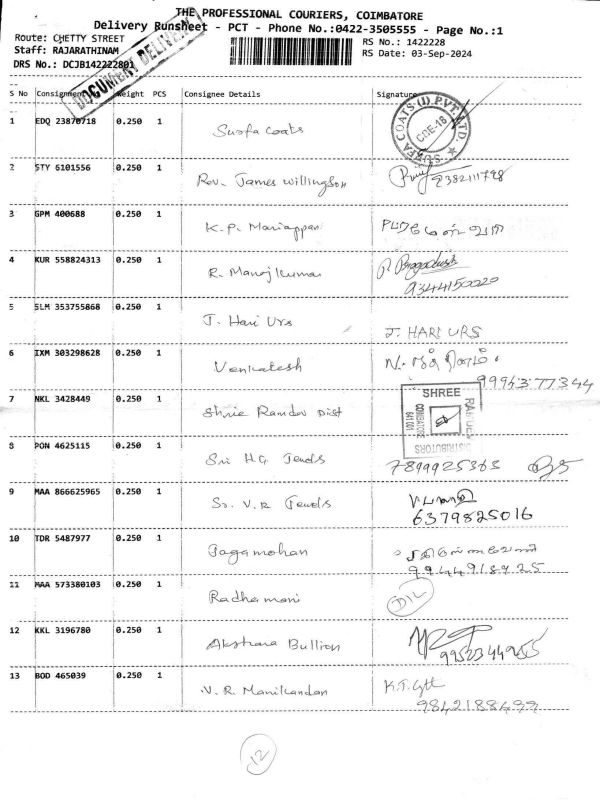 THE PROFESSIONAL COURIERS, COIMBATORE
Delivery Runsheet - PCT - Phone No.:0422-3505555 - Page No.:1
Route: CHETTY STREET
RS No.: 1422228
Staff: RAJARATHINAM
RS Date: 03-Sep-2024
DRS No.: DCJB142222801
DOCUMENT DELIVERY
S No Consignment Weight PCS Consignee Details Signature
1 EDQ 23870718 0.250 1 Surfa coats
SURFA COATS (I) PVT. LTD. COE-18
2 STY 6101556 0.250 1 Rev. James Willingson 9382111798
3 GPM 400688 0.250 1 K.P. Mariappan
4 KUR 558824313 0.250 1 R. Manoj Kumar
9344150020
5 SLM 353755868 0.250 1 J. Hari Urs J. HARI URS
6 IXM 303298628 0.250 1 Venkatesh
9994377344
7 NKL 3428449 0.250 1 Shree Ramdev Dist
SHREE RAMDEV DISTRIBUTORS COIMBATORE 641 001
8 PON 4625115 0.250 1 Sri H.G Jewels 7899925363
9 MAA 866625965 0.250 1 Sr. V.R Jewels
6379825016
10 TDR 5487977 0.250 1 Jagamohan
9944918925
11 MAA 573380103 0.250 1 Radhamani D/L
12 KKL 3196780 0.250 1 Akshara Bullion
9952344255
13 BOD 465039 0.250 1 V.R. Manikandan
9842188499
12